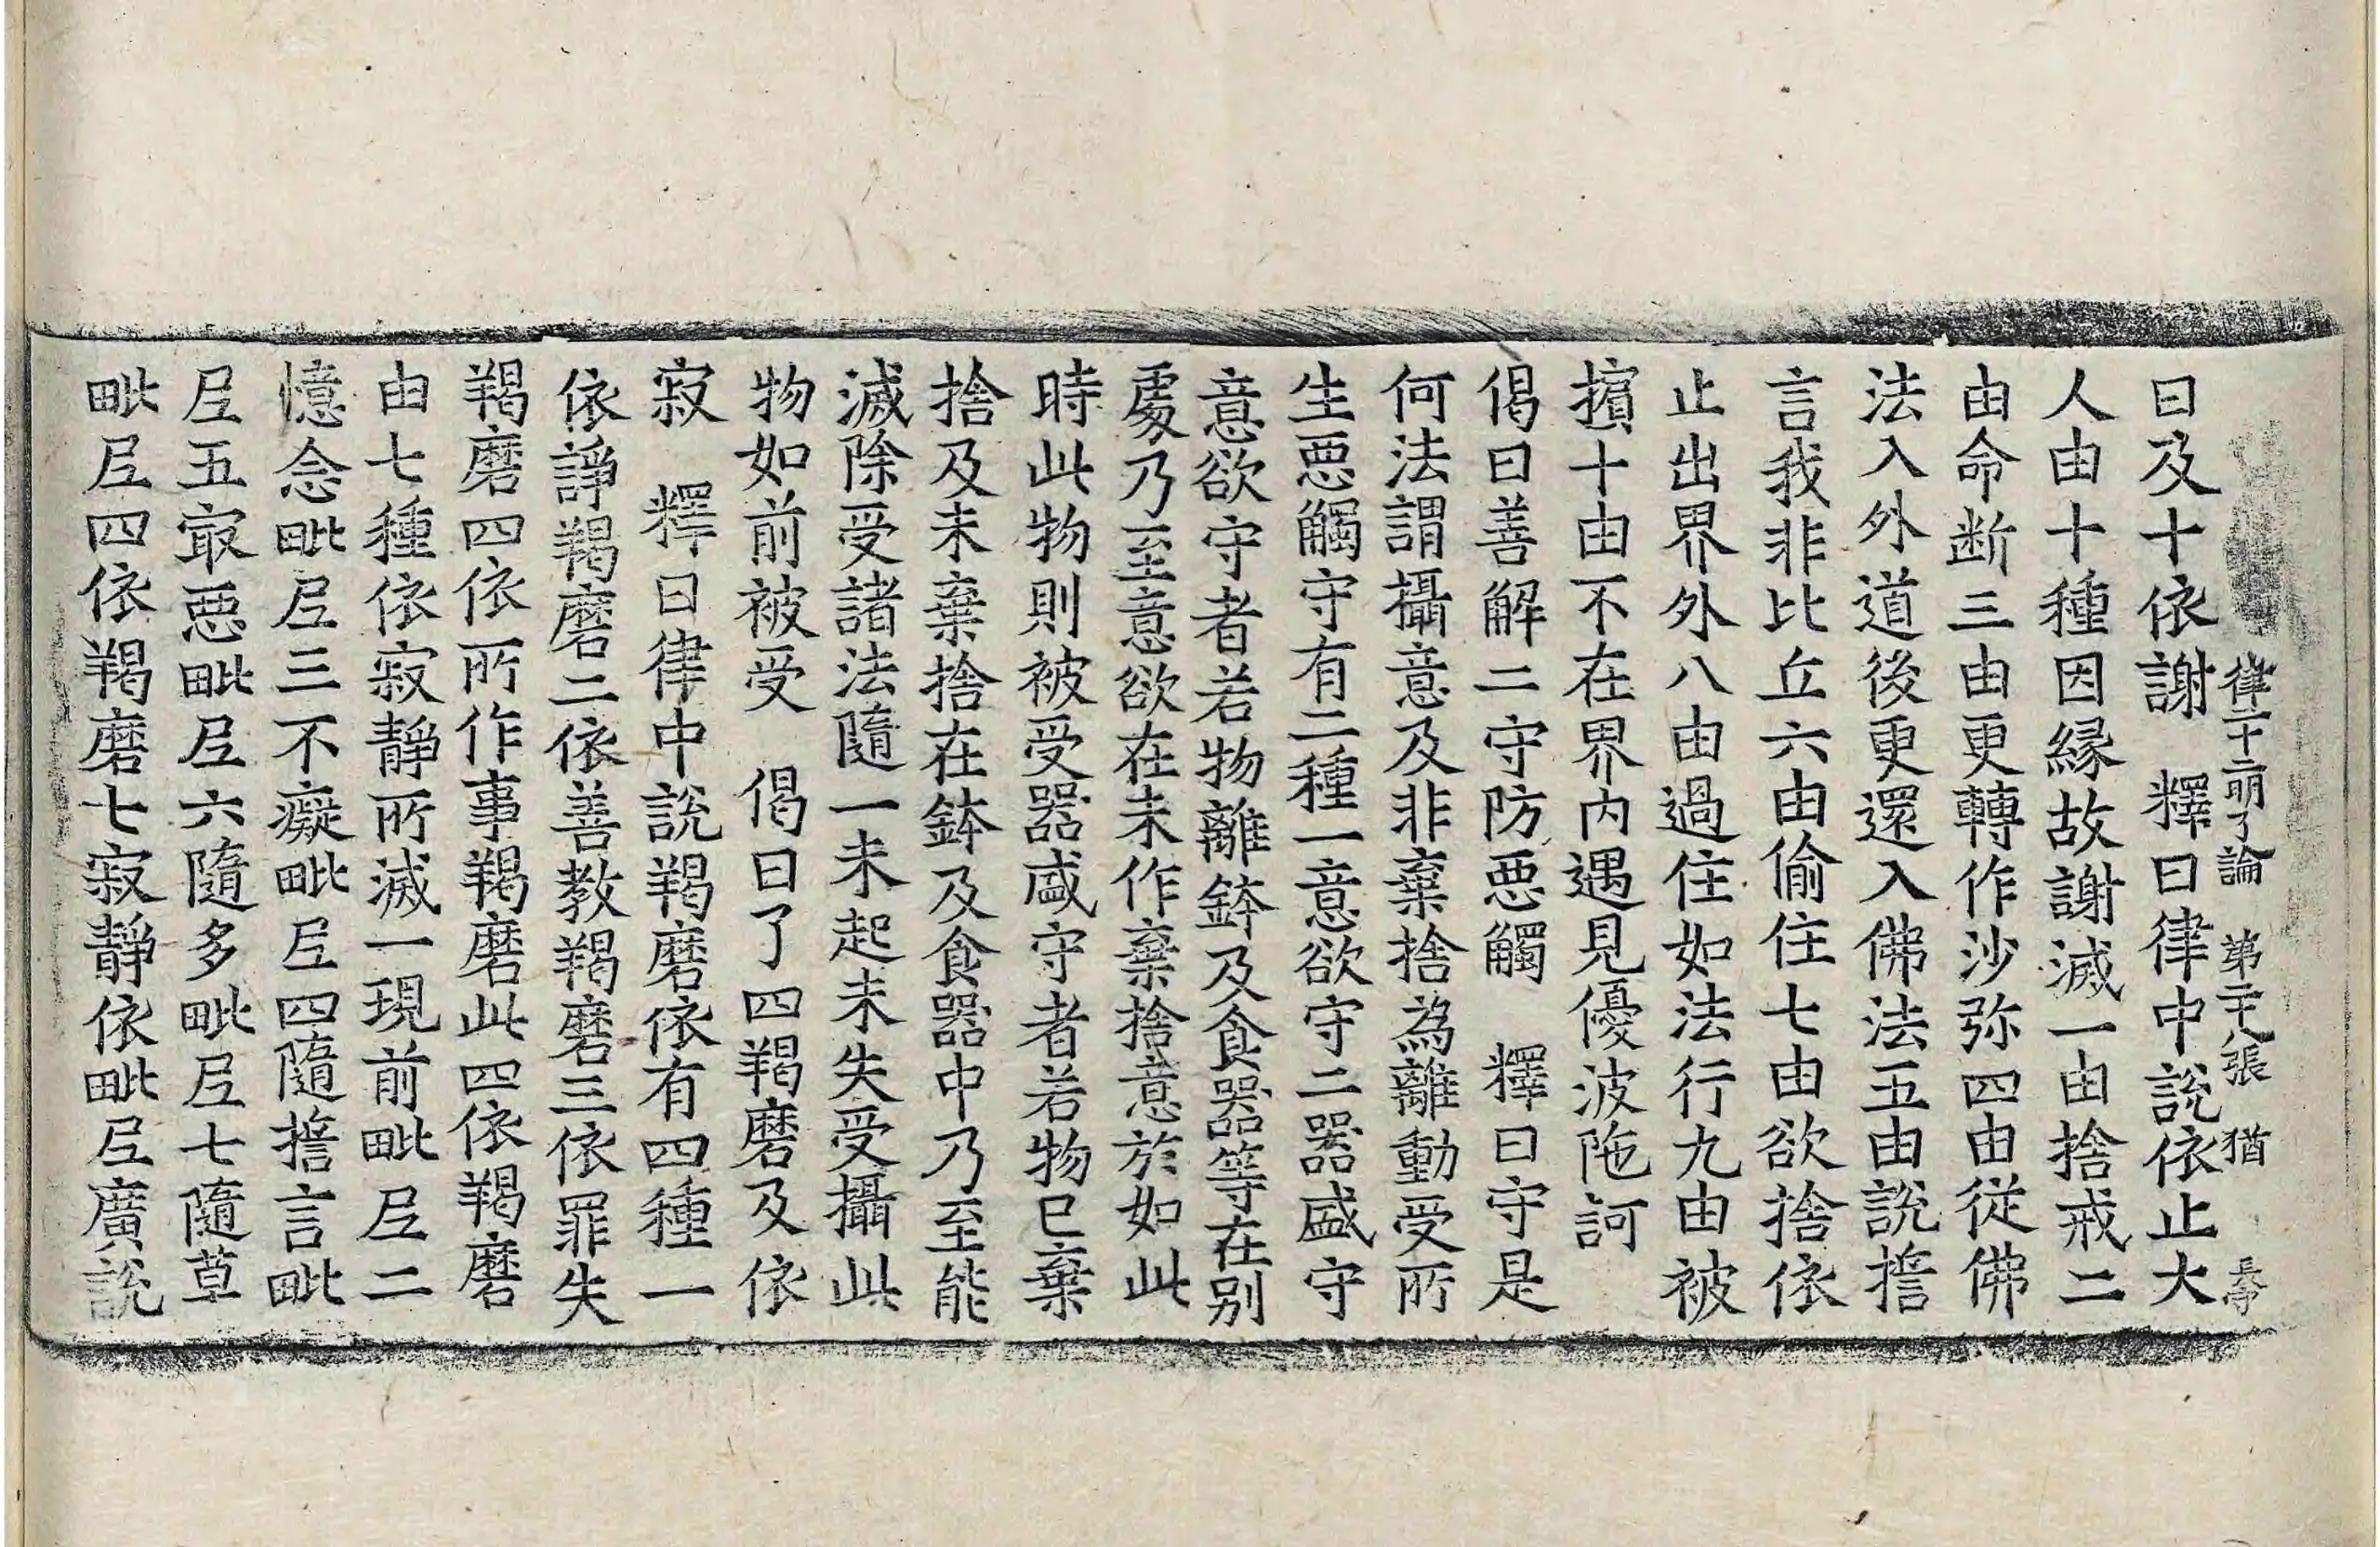 律二十二明了論　第二十八張　猶
曰及十依謝　釋曰律中說依止大
人由十種因縁故謝滅一由捨戒二
由命断三由更轉作沙弥四由從佛
法入外道後更還入佛法五由說擔
言我非比丘六由偷住七由欲捨依
止出界外八由過住如法行九由被
擯十由不在界内遇見優波陁訶
偈曰善解二守防惡觸　釋曰守是
何法謂攝意及非棄捨為離動受所
生惡觸守有二種一意欲守二器盛守
意欲守者若物離鉢及食器等在別
處乃至意欲在未作棄捨意於如此
時此物則被受器盛守者若物已棄
捨及未棄捨在鉢及食器中乃至能
滅除受諸法隨一未起未失受攝此
物如前被受　偈曰了四羯磨及依
寂　釋曰律中說羯磨依有四種一
依諍羯磨二依善教羯磨三依罪失
羯磨四依所作事羯磨此四依羯磨
由七種依寂靜所滅一現前毗尼二
憶念毗尼三不癡毗尼四隨擔言毗
尼五冣惡毗尼六隨多毗尼七隨草
毗尼四依羯磨七寂靜依毗尼廣說